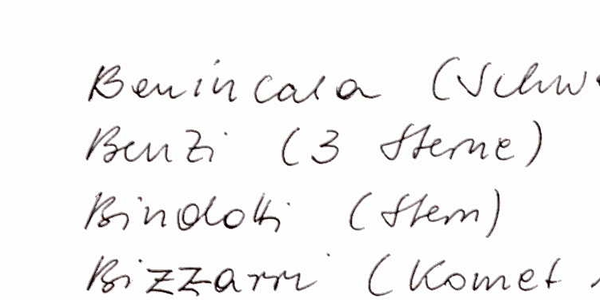 Benincasa (Schw
Benzi (3 Sterne)
Bindotti (Stern)
Bizzarri (Komet